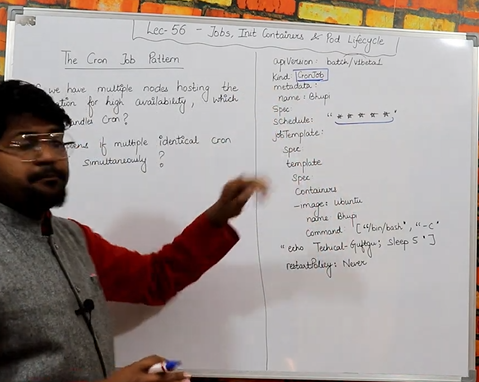 Lec-56 - Jobs, Init Containers & Pod Lifecycle
The Cron Job Pattern
we have multiple nodes hosting the
for high availability, which
Cron?
if multiple identical cron
simultaneously ?
apiVersion: batch/v1beta1
kind CronJob
metadata:
name: Bhupi
Spec
schedule: "* * * * *"
jobTemplate:
spec
template
Spec
Containers
-image: Ubuntu
name Bhupi
Command ["/bin/bash", "-c"
"echo Techical-Guftgu; sleep 5"]
restartPolicy: Never